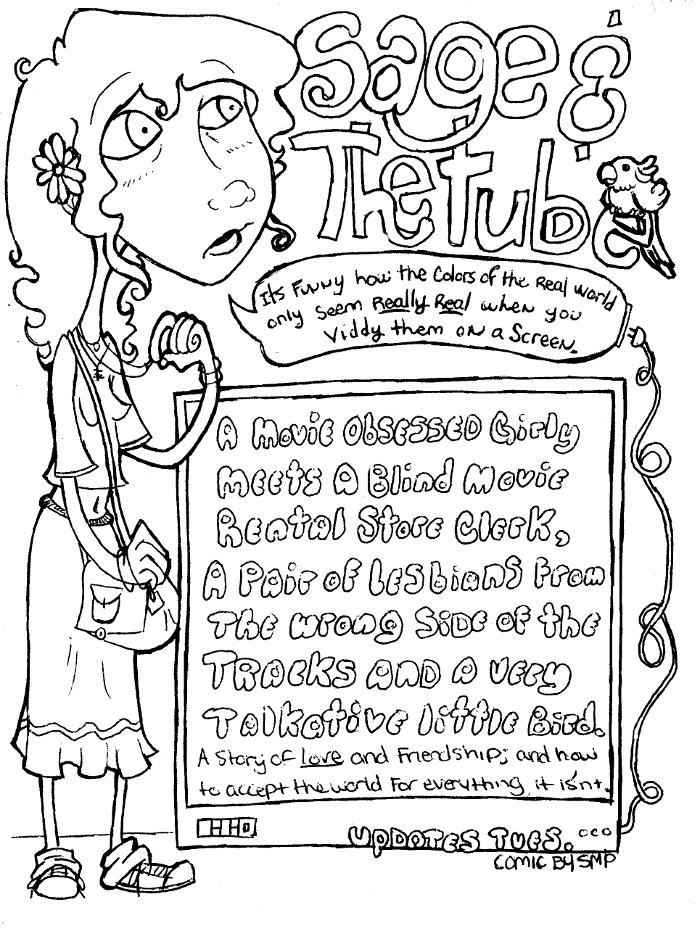 Sage &
The Tube
Its Funny how the Colors of the Real world
only seem Really Real when you
Viddy them on a Screen.
A Movie Obsessed Girly
Meets A Blind Movie
Rental Store Clerk,
A Pair of Lesbians From
The Wrong Side of the
Tracks AND A Very
Talkative little Bird.
A Story of Love and Friendship; and how
to accept the world For everything it isn't.
UPDATES TUES.
COMIC BY SMP